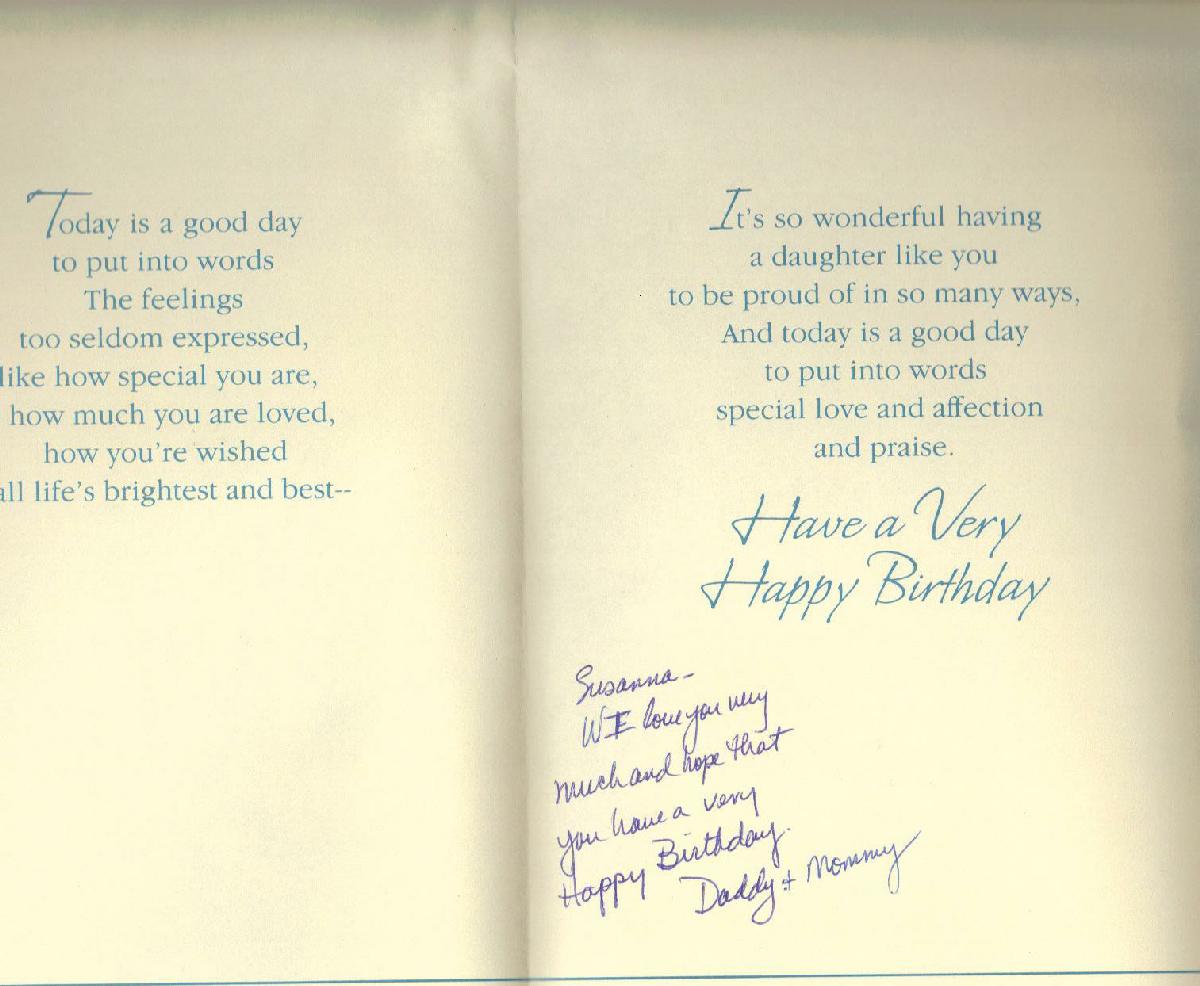 Today is a good day
to put into words
The feelings
too seldom expressed,
like how special you are,
how much you are loved,
how you're wished
all life's brightest and best--
It's so wonderful having
a daughter like you
to be proud of in so many ways,
And today is a good day
to put into words
special love and affection
and praise.
Have a Very
Happy Birthday
Susanna -
WE love you very
much and hope that
you have a very
Happy Birthday.
Daddy + Mommy